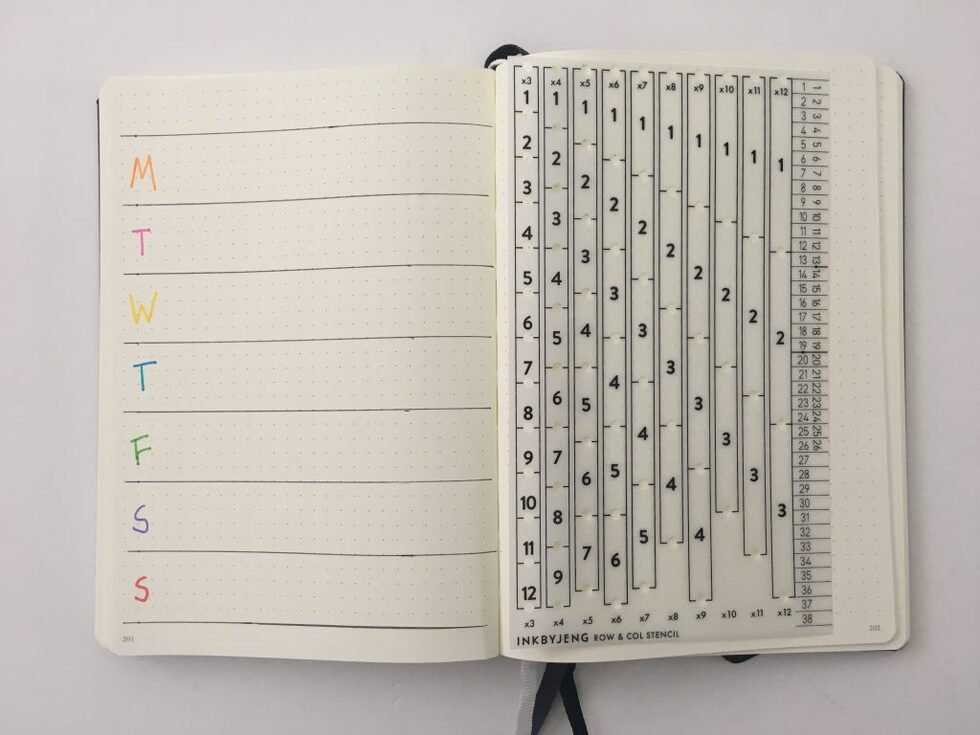 M
T
W
T
F
S
S
201
x3 x4 x5 x6 x7 x8 x9 x10 x11 x12
1 2 3 4 5 6 7 8 9 10 11 12
1 2 3 4 5 6 7 8 9
1 2 3 4 5 6 7
1 2 3 4 5 6
1 2 3 4 5
1 2 3 4
1 2 3 4
1 2 3
1 2 3
1 2 3
1 1
2 2
3 3
4 4
5 5
6 6
7 7
8 8
9 9
10 10
11 11
12 12
13 13
14 14
15 15
16 16
17 17
18 18
19 19
20 20
21 21
22 22
23 23
24 24
25 25
26 26
27
28
29
30
31
32
33
34
35
36
37
38
x3 x4 x5 x6 x7 x8 x9 x10 x11 x12
INKBYJENG ROW & COL STENCIL
202